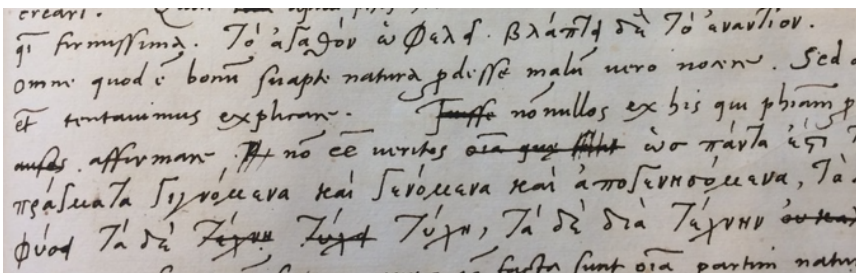 creari.
firmissima. Τό ἀγαθόν ὠφελεῖ. βλάπτει δὲ Τό ἐναντίον.
omne quod ē bonū suapte natura ꝓdesse malū vero nocere. Sed
et tentauimus explicare. Fuisse nōnullos ex his qui phiam
ausos affirmare nō eē ueritos oīa que ὡσ πάντα ἐςι
πράγματα γιγνόμενα καὶ γενόμενα καὶ ἀπογενησόμενα, Τὰ
φύσει Τὰ δὲ Τέχνη Τύχῃ Τύχη, Τὰ δὲ διὰ Τέχνην
facta sunt oīa partim natur